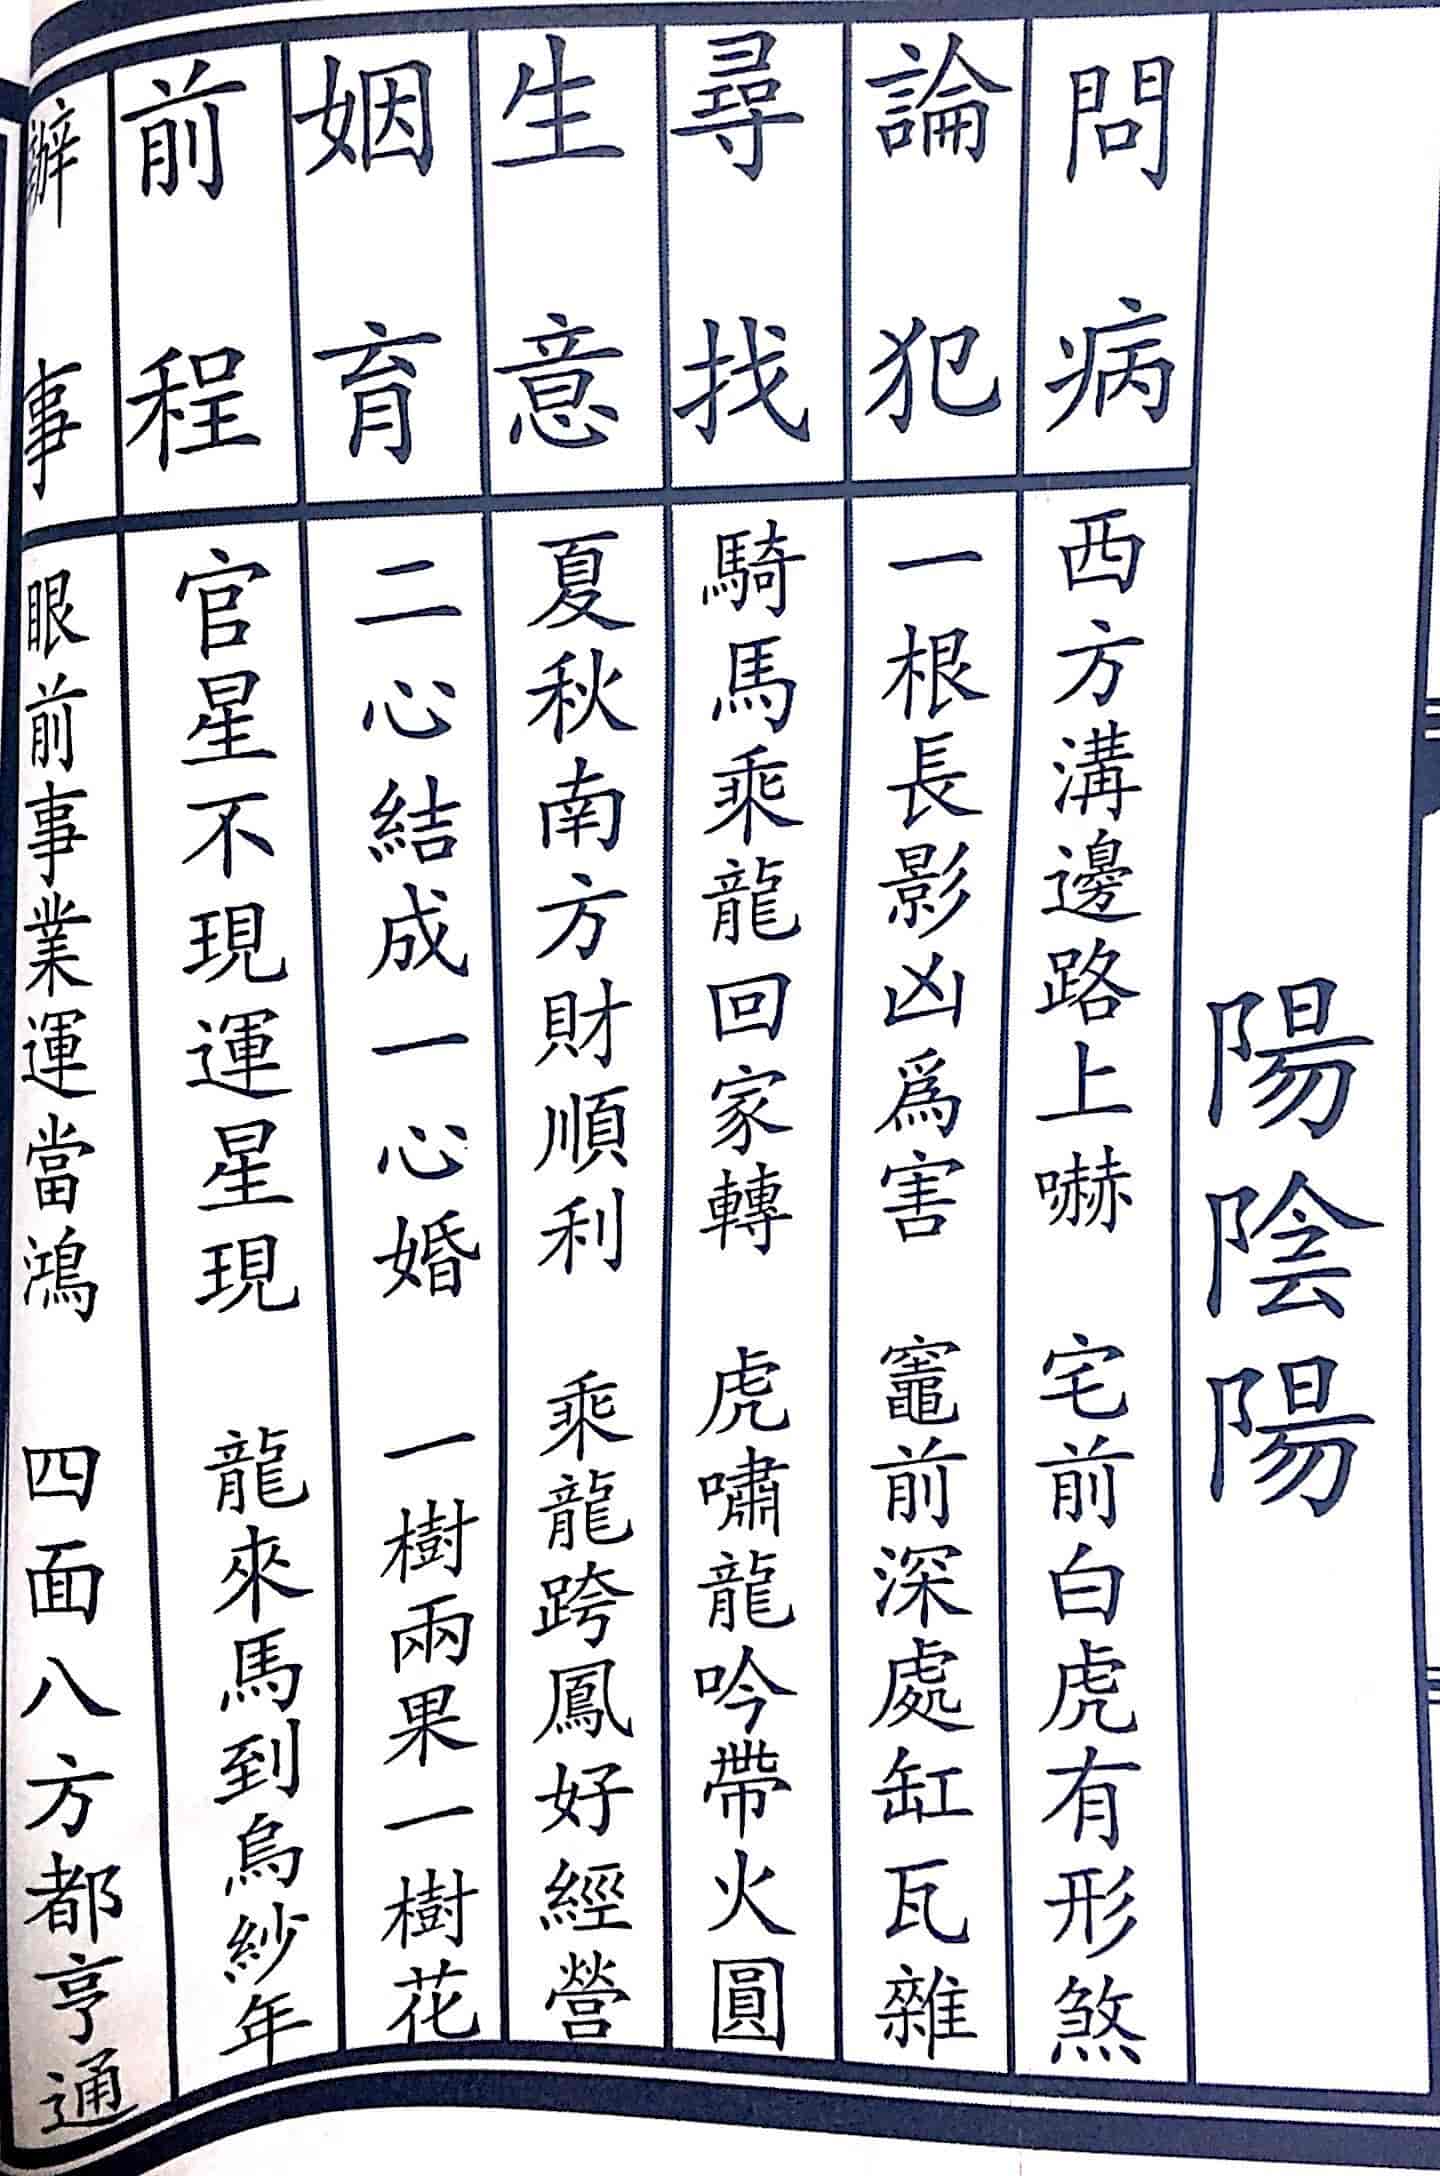 陽陰陽
問病
西方溝邊路上嚇 宅前白虎有形煞
論犯
一根長影凶爲害 竈前深處缸瓦雜
尋找
騎馬乘龍回家轉 虎嘯龍吟帶火圓
生意
夏秋南方財順利 乘龍跨鳳好經營
姻育
二心結成一心婚 一樹兩果一樹花
前程
官星不現運星現 龍來馬到烏紗年
辦事
眼前事業運當鴻 四面八方都亨通